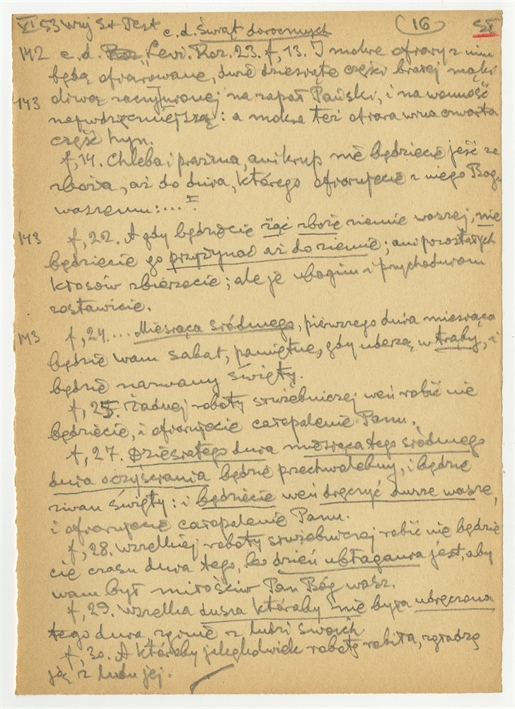 VI 53 Wyj St Test c.d. Świąt dorocznych (16) 55
142 c.d. Levi. Roz. 23. f, 13. I mokre ofiary z nim
będą ofiarowane, dwie dziesiąte części białej mąki
143 oliwą zaczynionej na zapał Pański, i na wonność
najwdzięczniejszą: a mokra też ofiara wina czwarta
część hyn.
f, 14. Chleba i prażma, ani krup nie będziecie jeść ze
zboża, aż do dnia, którego ofiarujecie z niego Bogu
waszemu:...=
143 f, 22. A gdy będziecie żąć zboże ziemie waszej, nie
będziecie go przyżynać aż do ziemie; ani pozostałych
kłosów zbierzecie; ale je ubogim i przychodniom
zostawicie.
143 f, 24.... Miesiąca siódmego, pierwszego dnia miesiąca
będzie wam sabat, pamiętne, gdy uderzą w trąby, i
będzie nazwany święty.
f, 25. Żadnej roboty służebniczej weń robić nie
będziecie, i ofiarujecie całopalenie Panu.
f, 27. Dziesiątego dnia miesiąca tego siódmego
dnia oczyścienia będzie przechwalebny, i będzie
zwan święty: i będziecie weń dręczyć dusze wasze,
i ofiarujecie całopalenie Panu.
f, 28. Wszelkiej roboty służebniczej robić nie będzie
cie czasu dnia tego, bo dzień ubłagania jest, aby
wam był miłościw Pan Bóg wasz.
f, 29. Wszelka dusza któraby nie była udręczona
tego dnia, zginie z ludzi swoich
f, 30. A któraby jakążkolwiek robotę robiła, zgładzę
ją z ludu jej.